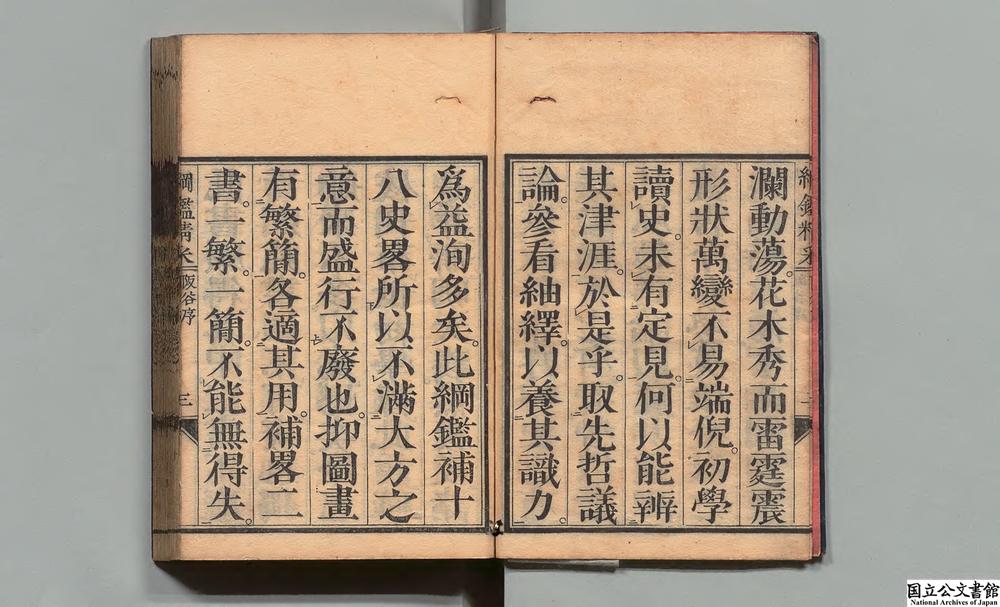 瀾動蕩。花木秀而雷霆震
形狀萬變。不易端倪。初學
讀史。未有定見。何以能辨
其津涯。於是乎。取先哲議
論。參看紬繹。以養其識力。
爲益洵多矣。此綱鑑補十
八史畧所以不滿大方之
意而盛行不廢也。抑圖畫
有繁簡。各適其用。補畧二
書。一繁一簡。不能無得失。
綱鑑精采
阪谷序
三
国立公文書館
National Archives of Japan